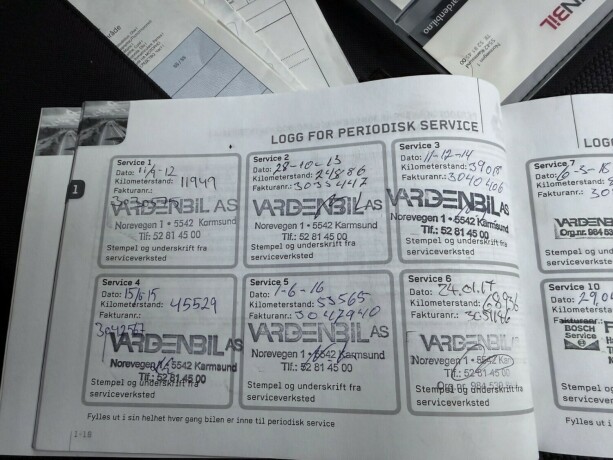 område
Vardenbil.no
Norevegen 1
5542 Karmsund
LOGG FOR PERIODISK SERVICE
1
Service 1
Dato: 11/9-12
Kilometerstand: 11949
Fakturanr.:
VARDENBIL AS
Norevegen 1 • 5542 Karmsund
Tlf.: 52 81 45 00
Stempel og underskrift fra
serviceverksted
Service 2
Dato: 28-10-13
Kilometerstand: 24886
Fakturanr.: 3035447
VARDENBIL AS
Norevegen 1 • 5542 Karmsund
Tlf.: 52 81 45 00
Stempel og underskrift fra
serviceverksted
Service 3
Dato: 11-12-14
Kilometerstand: 39018
Fakturanr.: 3040406
VARDENBIL AS
Norevegen 1 • 5542 Karmsund
Tlf.: 52 81 45 00
Stempel og underskrift fra
serviceverksted
Service 7
Dato: 16-5-18
Kilometerstand:
Fakturanr.:
VARDENBIL
Org.nr. 984 53
Stempel og
serviceverk
Service 4
Dato: 15/6-15
Kilometerstand: 45529
Fakturanr.:
VARDENBIL AS
Norevegen 1 • 5542 Karmsund
Tlf.: 52 81 45 00
Stempel og underskrift fra
serviceverksted
Service 5
Dato: 1-6-16
Kilometerstand: 53565
Fakturanr.: 3042940
VARDENBIL AS
Norevegen 1 • 5542 Karmsund
Tlf.: 52 81 45 00
Stempel og underskrift fra
serviceverksted
Service 6
Dato: 24.01.17
Kilometerstand:
Fakturanr.:
VARDENBIL
Norevegen 1 • 5542 Kar
Tlf.: 52 81 45 00
Stempel og underskrift fra
serviceverksted
Service 10
Dato: 29.0
Kilometers
Fakturanr.:
BOSCH
Service
Stempel og
serviceverk
Fylles ut i sin helhet hver gang bilen er inne til periodisk service
Fylles ut i
1-16